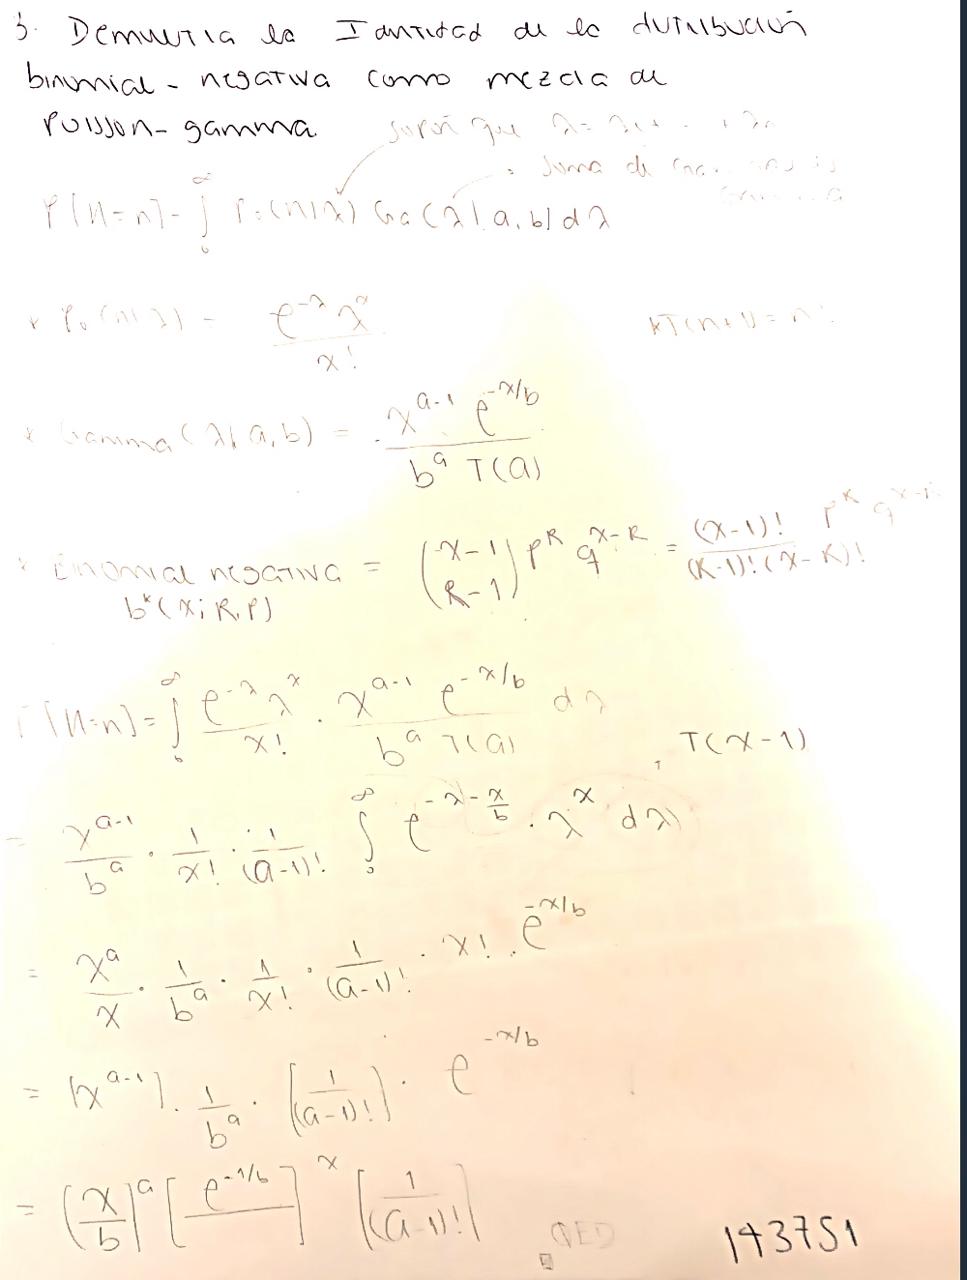 3. Demuestra la Identidad de la distribución
binomial - negativa como mezcla de
Poisson - gamma
supón que λ = λ1 + . . + λn
suma de
P[N=n] = ∫₀^∞ Po(n|λ) Ga(λ|a,b) dλ
* Po(n|λ) = e^{-λ} λ^x / x!
* Γ(n+1) = n!
* Gamma(λ|a,b) = x^{a-1} e^{-x/b} / b^a Γ(a)
* Binomial negativa = (x-1 / R-1) P^R q^{x-R} = (x-1)! / (K-1)!(x-K)! P^K q^{x-K}
b*(x; R, P)
P[N=n] = ∫₀^∞ e^{-λ} λ^x / x! · x^{a-1} e^{-x/b} / b^a Γ(a) dλ
Γ(x-1)
= x^{a-1} / b^a · 1/x! · 1/(a-1)! ∫₀^∞ e^{-λ - x/b} · λ^x dλ
= x^a / x · 1/b^a · 1/x! · 1/(a-1)! · x! · e^{-x/b}
= [x^{a-1}] · 1/b^a · [1/(a-1)!] · e^{-x/b}
= (x/b)^a [e^{-1/b}]^x [1/(a-1)!]
QED
143751